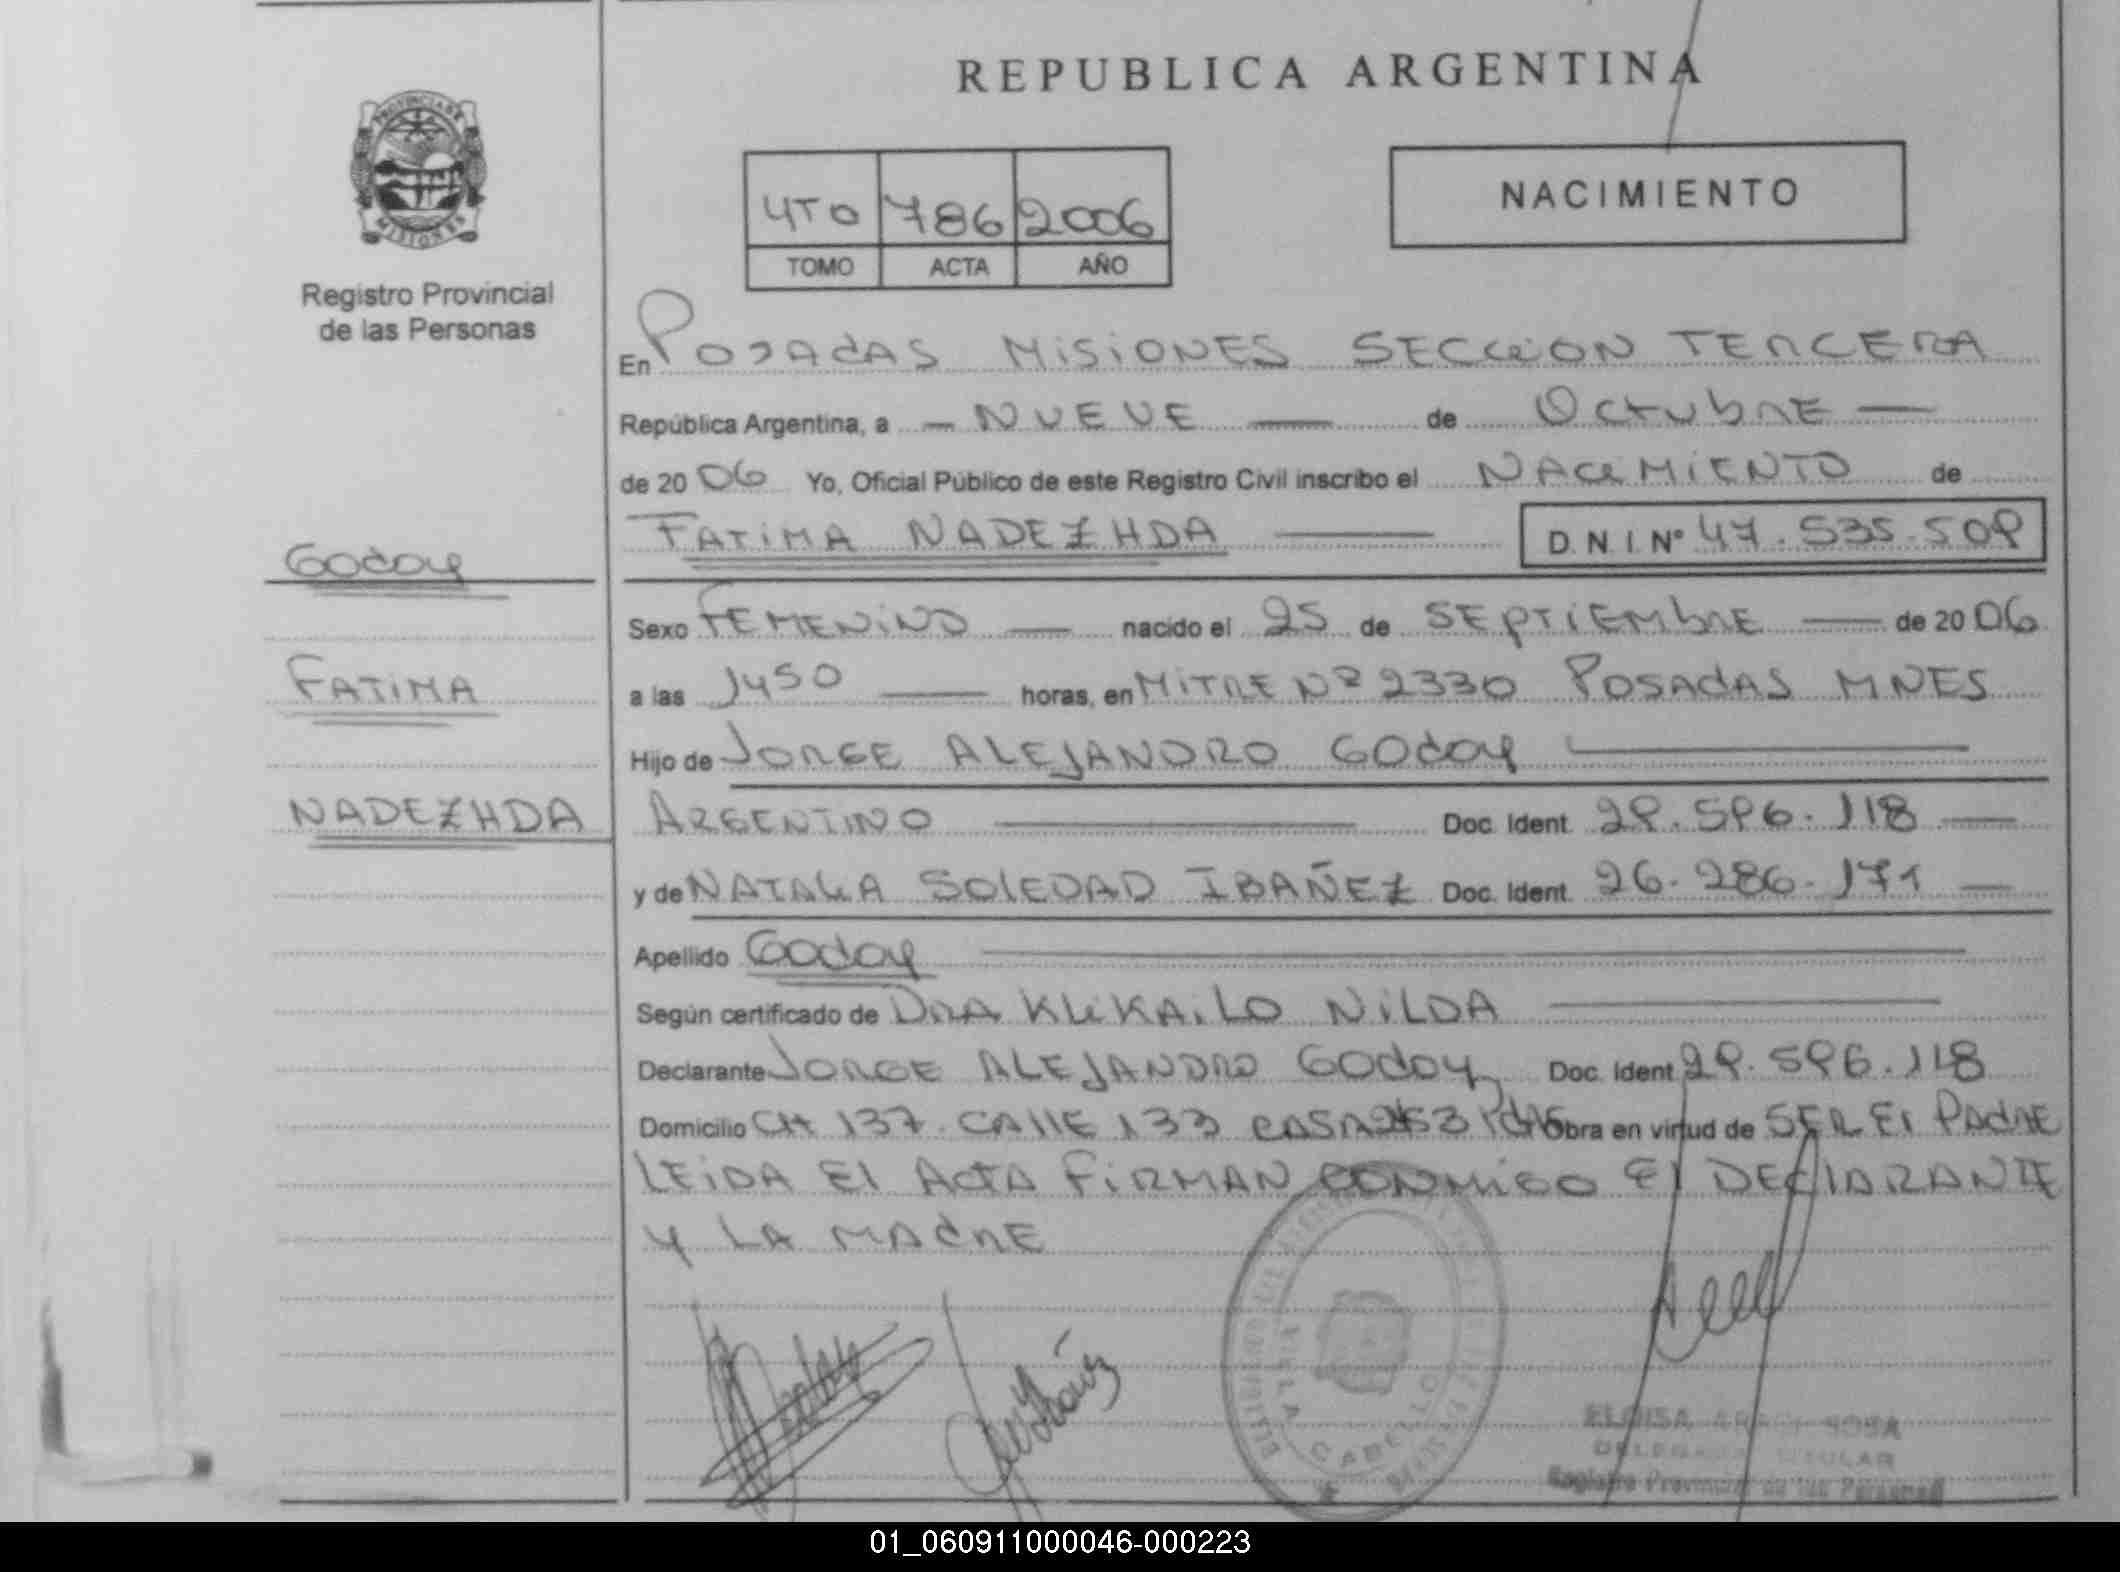 REPUBLICA ARGENTINA
PROVINCIA DE
MISIONES
Registro Provincial
de las Personas
4TO 786 2006
TOMO ACTA AÑO
NACIMIENTO
En POSADAS MISIONES SECCION TERCERA
República Argentina, a — NUEVE — de OCTUBRE —
de 2006 Yo, Oficial Público de este Registro Civil inscribo el NACIMIENTO de
FATIMA NADEZHDA — D.N.I. Nº 47.535.509
Godoy
FATIMA
NADEZHDA
Sexo FEMENINO — nacido el 25 de SEPTIEMBRE — de 2006
a las 1450 — horas, en MITRE Nº 2330 POSADAS MNES
Hijo de JORGE ALEJANDRO GODOY —
ARGENTINO — Doc. Ident. 29.596.118 —
y de NATALIA SOLEDAD IBAÑEZ Doc. Ident. 26.286.171 —
Apellido Godoy —
Según certificado de DRA KLIKAILO NILDA —
Declarante JORGE ALEJANDRO GODOY Doc. Ident 29.596.118
Domicilio CH 137. CALLE 133 CASA Obra en virtud de SER El PADRE
LEIDA El ACTA FIRMAN CONMIGO El DEClARANTE
Y LA MADRE
CABELLO
ELOISA SOSA
TITULAR
Registro Provincial de las Personas
01_060911000046-000223